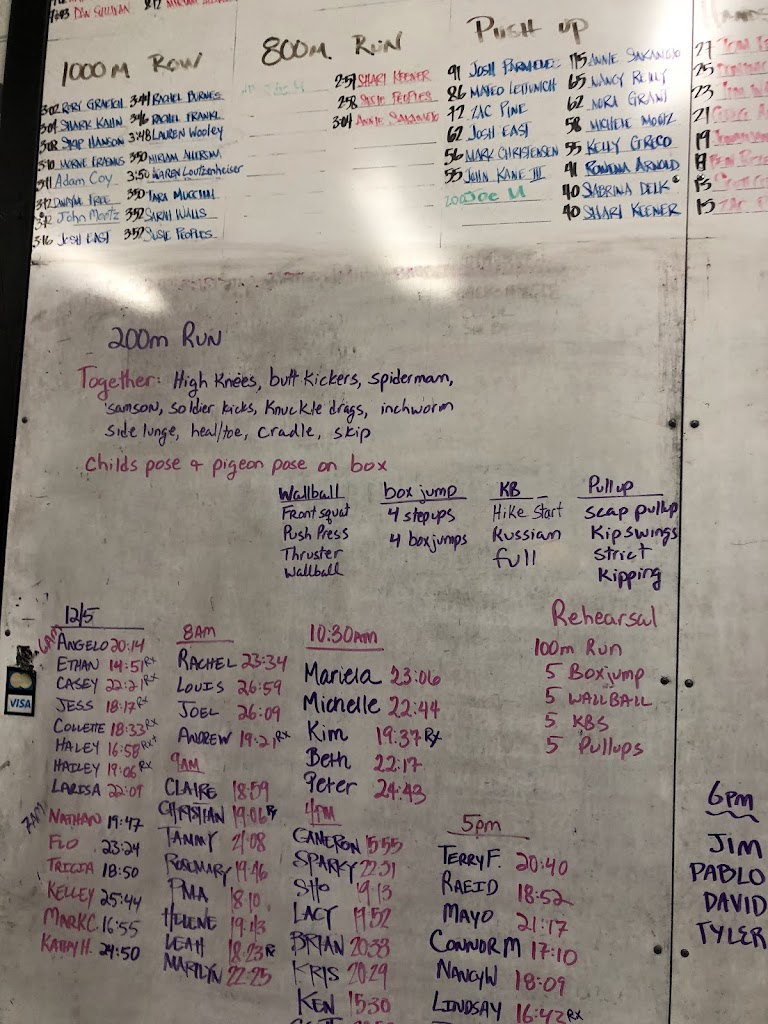 7:43 DAN SULLIVAN
1000M ROW
3:02 RORY
3:04 SHARK KAHN
SKIP HANSON
3:10
3:11 Adam Coy
3:12 DWAYNE TREE
3:12 John Moritz
3:16 JOSH EAST
3:44 RACHEL BURNES
3:46 RACHEL FRANKL
3:48 LAUREN WOOLEY
3:50 MIRIAM
3:50 KAREN Loutzenheiser
3:50 TARA
3:52 SARAH WALLS
3:57 SUSIE PEOPLES
800M RUN
2:57 SHARI KEENER
2:58 SUSIE PEOPLES
3:04 ANNIE SAKAMOTO
PUSH UP
91 JOSH
86 MATEO
72 ZAC PINE
62 JOSH EAST
56 MARK CHRISTENSEN
55 JOHN KANE III
200 Joe M
115 ANNIE SAKAMOTO
65 NANCY REILLY
62 NORA GRANT
58 MICHELE
55 KELLY GRECO
41 ROWENA ARNOLD
40 SABRINA DELK
40 SHARI KEENER
27
25
23
21
19
15
15
200m RUN
Together: High Knees, butt kickers, spiderman,
samson, soldier kicks, Knuckle drags, inchworm
side lunge, heal/toe, cradle, skip
Childs pose + pigeon pose on box
Wallball
Front squat
Push Press
Thruster
Wallball
box jump
4 stepups
4 boxjumps
KB
Hike start
Russian
full
Pullup
scap pullup
Kip swings
strict
Kipping
12/5
6AM
ANGELO 20:14
ETHAN 14:51 RX
CASEY 22:21 RX
JESS 18:17 RX
COLLETTE 18:33 RX
HALEY 16:58 RX+
HAILEY 19:06 RX
LARISA 22:07
7AM
NATHAN 19:47
FLO 23:24
TRICIA 18:50
KELLEY 25:44
MARK C. 16:55
KATHY H. 24:50
8AM
RACHEL 23:34
LOUIS 26:59
JOEL 26:09
ANDREW 19:21 RX
9AM
CLAIRE 18:59
CHRISTIAN 19:06 RX
TAMMY 21:08
ROSEMARY 19:46
PMA 18:10
HELENE 19:13
LEAH 18:23 RX
MARILYN 22:25
10:30AM
Mariela 23:06
Michelle 22:44
Kim 19:37 RX
Beth 22:17
Peter 24:43
4PM
CAMERON 15:55
SPARKY 22:31
SHO 19:13
LACY 19:52
BRIAN 20:38
KRIS 20:29
KEN 15:30
5pm
TERRY F. 20:40
RAEID 18:52
MAYO 21:17
CONNOR M 17:10
NANCY W 18:09
LINDSAY 16:43 RX
Rehearsal
100m Run
5 Boxjump
5 WALLBALL
5 KBS
5 Pullups
6pm
JIM
PABLO
DAVID
TYLER
VISA